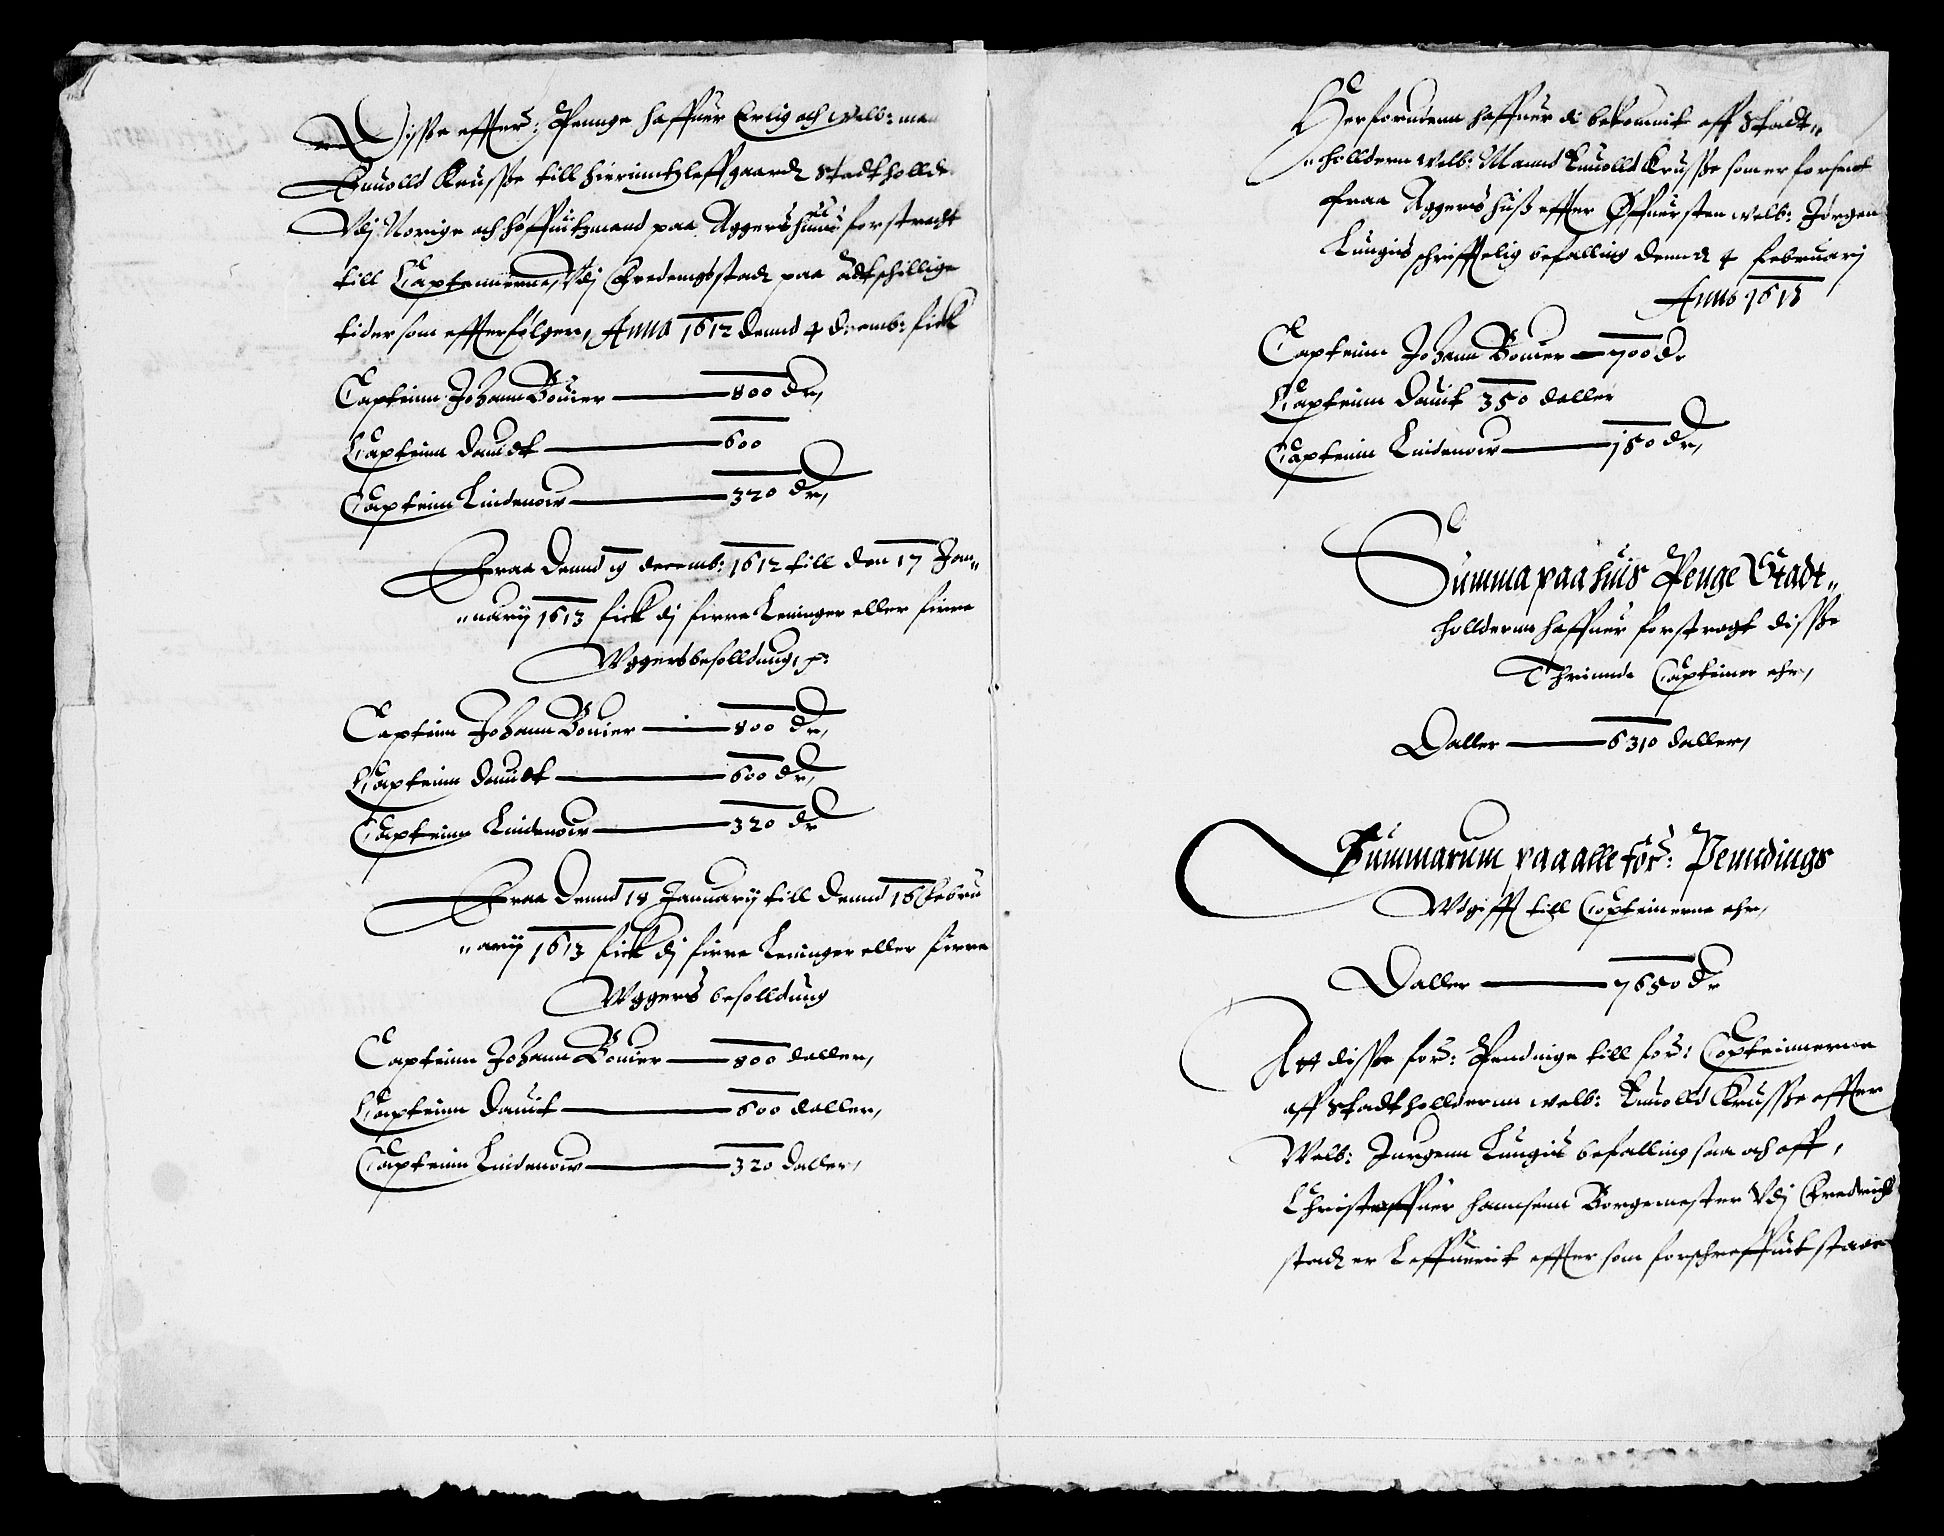 Disße effters: Pennge haffuer Erlig och Welb: man
Enuolld Krusße till Hierimitzleffgaardt Stadthollde
Vdj Norige och höffuitzmand paa Aggershuus forstracht
till Capteinerne, Vdj Fredrigsstadt paa Adtschillige
tider som effterfølger, Anno 1612 dennd 4 decemb: fick
Capteinn Johann Bouier — 800 dr,
Capteinn Dauidt — 600
Capteinn Lindenow — 320 dr,
Fraa dennd 19 decemb: 1612 till den 17 Jan„
„uarij 1613 fick dj firre Leninger eller firre
Wggers besolldung,
Capteinn Johann Bouier — 800 dr,
Capteinn Dauidt — 600 dr,
Capteinn Lindenow — 320 dr
Fraa dennd 18 Januarij till dennd 16 Febru
„arij 1613 fick dj firre Leninger eller firre
Wggers besolldung
Capteinn Johann Bouier — 800 daller,
Capteinn Dauit — 600 daller,
Capteinn Lindenow — 320 daller,
Herforudenn haffuer di bekommit aff Stadt„
„holldern Welb: Mannd Enuolld Krusße som er forsent
fraa Aggershuß effter Øffuersten welb: Jørgen
Lungis schrifftelig befalling dennd 4 Februarj
Anno 1613
Capteinn Johann Bouier — 700 dr
Capteinn Dauit 350 daller
Capteinn Lindenow — 150 dr,
Summa paa huis Penge Stadt„
hollderenn haffuer forstragt disße
Thrinnde Capteiner ehr,
Daller — 6310 daller,
Summarum paa alle for: Penndings
Wdgifft till Capteinerne ehr,
Daller — 7650 dr
Att disße for: Pendinge till for: Capteinnerne
aff Stadthollderenn welb: Enuolld Krusße effter
Welb: Jurgenn Lungis befalling saa och aff,
Christoffuer Hannsenn Borgemester Vdj Fredrichs
stadt er Leffuerit effter som forschreffuit staar